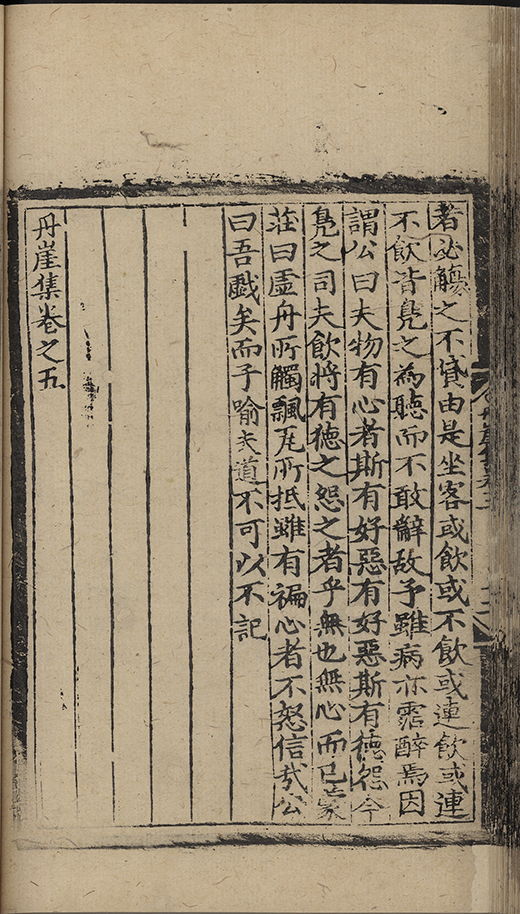 者必觴之不貸由是坐客或飲或不飲或連飲或連
不飲皆鳧之為聽而不敢辭故予雖病亦霑醉焉因
謂公曰夫物有心者斯有好惡有好惡斯有德怨今
鳧之司夫飲將有德之怨之者乎無也無心而已蒙
莊曰虛舟所觸飄瓦所抵雖有褊心者不怒信哉公
曰吾戲矣而子喻夫道不可以不記
丹崖集卷之五